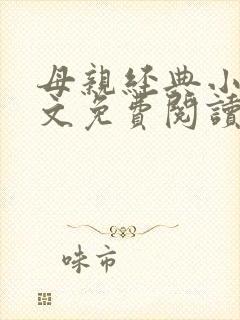 母親經典小
文免費閱讀
味市